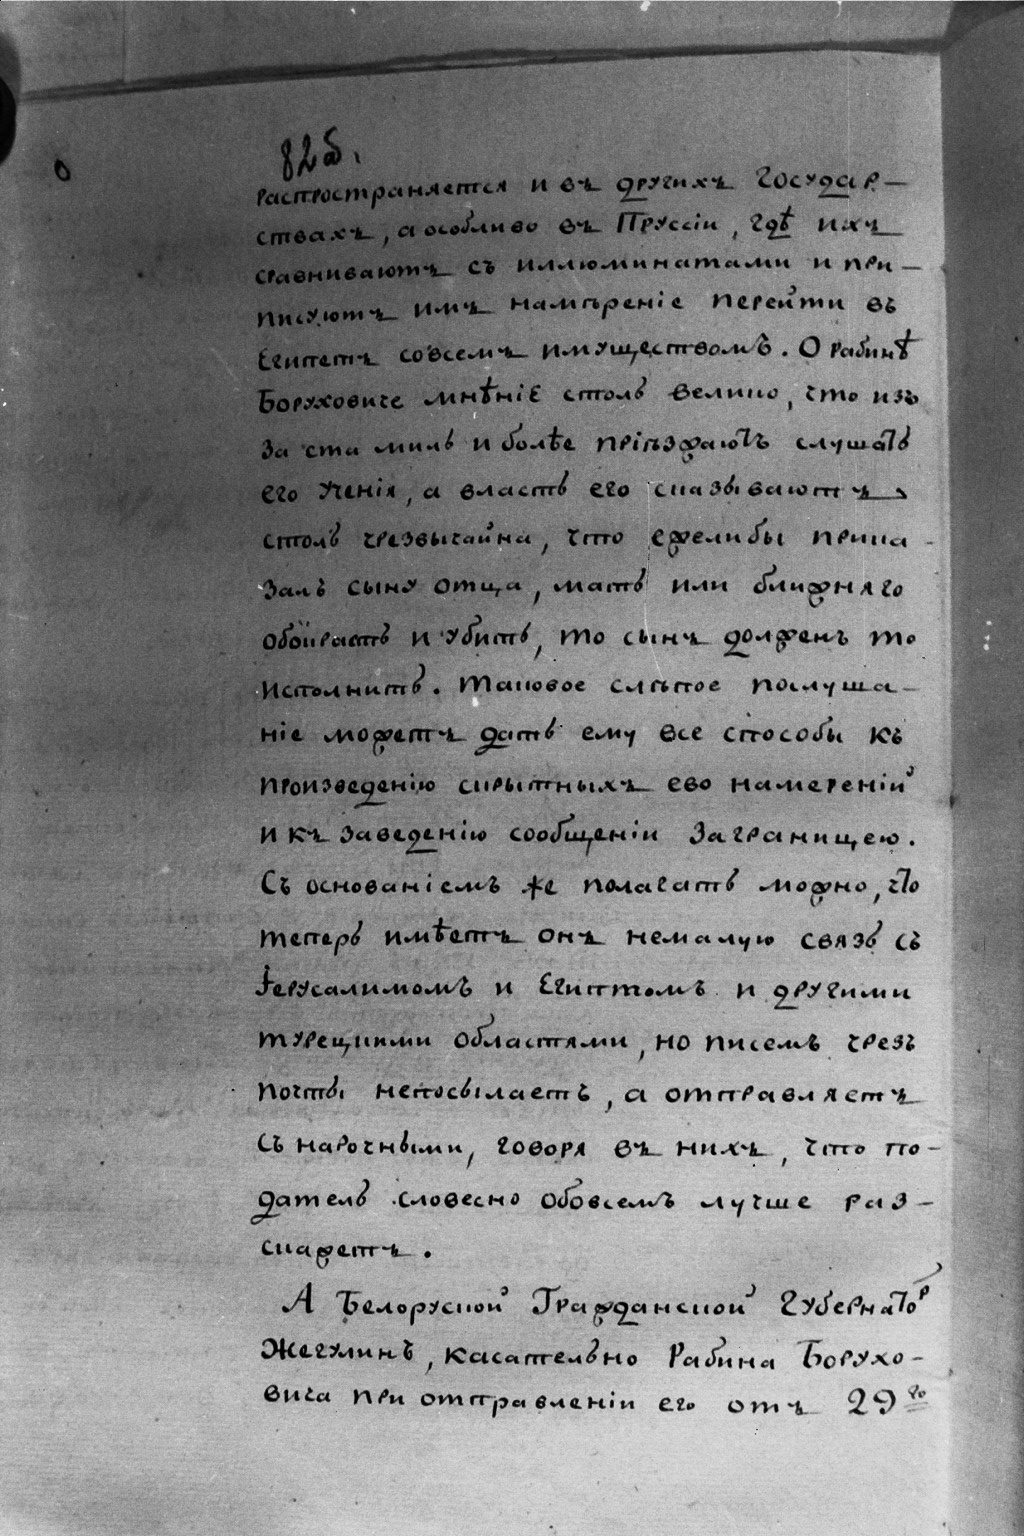 82б.
распространяется и въ другихъ государ-
ствахъ, а особливо въ Пруссіи, гдѣ ихъ
сравниваютъ съ иллюминатами и при-
писуютъ имъ намѣреніе перейти въ
Египетъ совсемъ имуществомъ. О рабинѣ
Боруховиче мнѣніе столь велико, что изъ
за ста миль и болѣе пріѣзжаютъ слушать
его ученія, а власть его сказываютъ
столь чрезвычайна, что ежелибы прика-
залъ сыну отца, мать или ближняго
обоирать и убить, то сынъ должен то
исполнить. Таковое слѣпое послуша-
ніе можетъ дать ему все способы къ
произведенію скрытныхъ ево намереній
и къ заведенію сообщеніи заграницею.
Съ основаніемъ же полагать можно, что
теперь имѣетъ онъ немалую связь съ
Іерусалимомъ и Египтомъ и другими
турецкими областями, но писемъ чрезъ
почты непосылаетъ, а отправляетъ
съ нарочными, говоря въ нихъ, что по-
датель словесно обовсемъ лучше раз-
скажетъ.
А Белоруской Гражданской Губернаторъ
Жегулинъ, касательно Рабина Борухо-
вича при отправленіи его отъ 29го